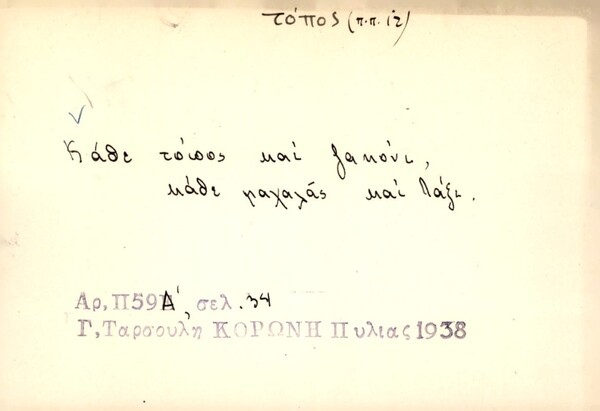 τόπος (π.π. 12)
Κάθε τόπος καί ζακόνι,
κάθε μαχαλάς καί τάξι.
Αρ, Π59Δ', σελ. 34
Γ, Ταρσουλη ΚΟΡΩΝΗ Πυλιας 1938